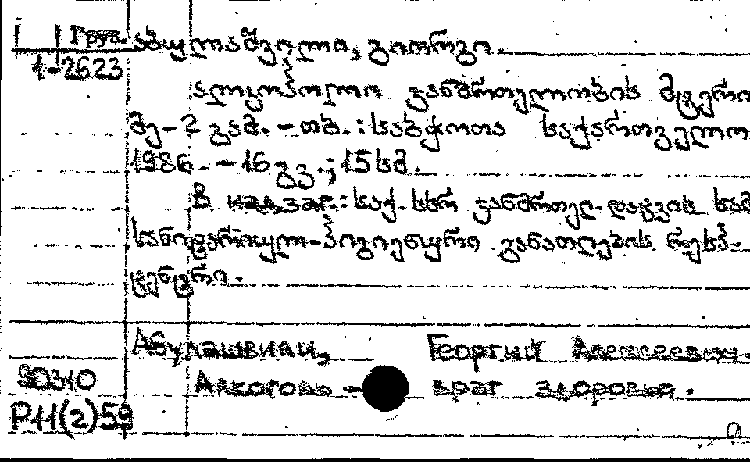 Груз.
1-2623
აბულაშვილი, გიორგი.
ალკოჰოლი ჯანმრთელობის მტერი
მე-2 გამ. - თბ. : საბჭოთა საქართველო
1986. - 16 გვ.; 15 სმ.
В надзаг.: საქ. სსრ ჯანმრთელ. დაცვის სამ
სანიტარიულ-ჰიგიენური განათლების რესპ.
ცენტრი.
Абулашвили, Георгий Алексеевич.
Алкоголь - враг здоровья.
30310
Р11(2)59